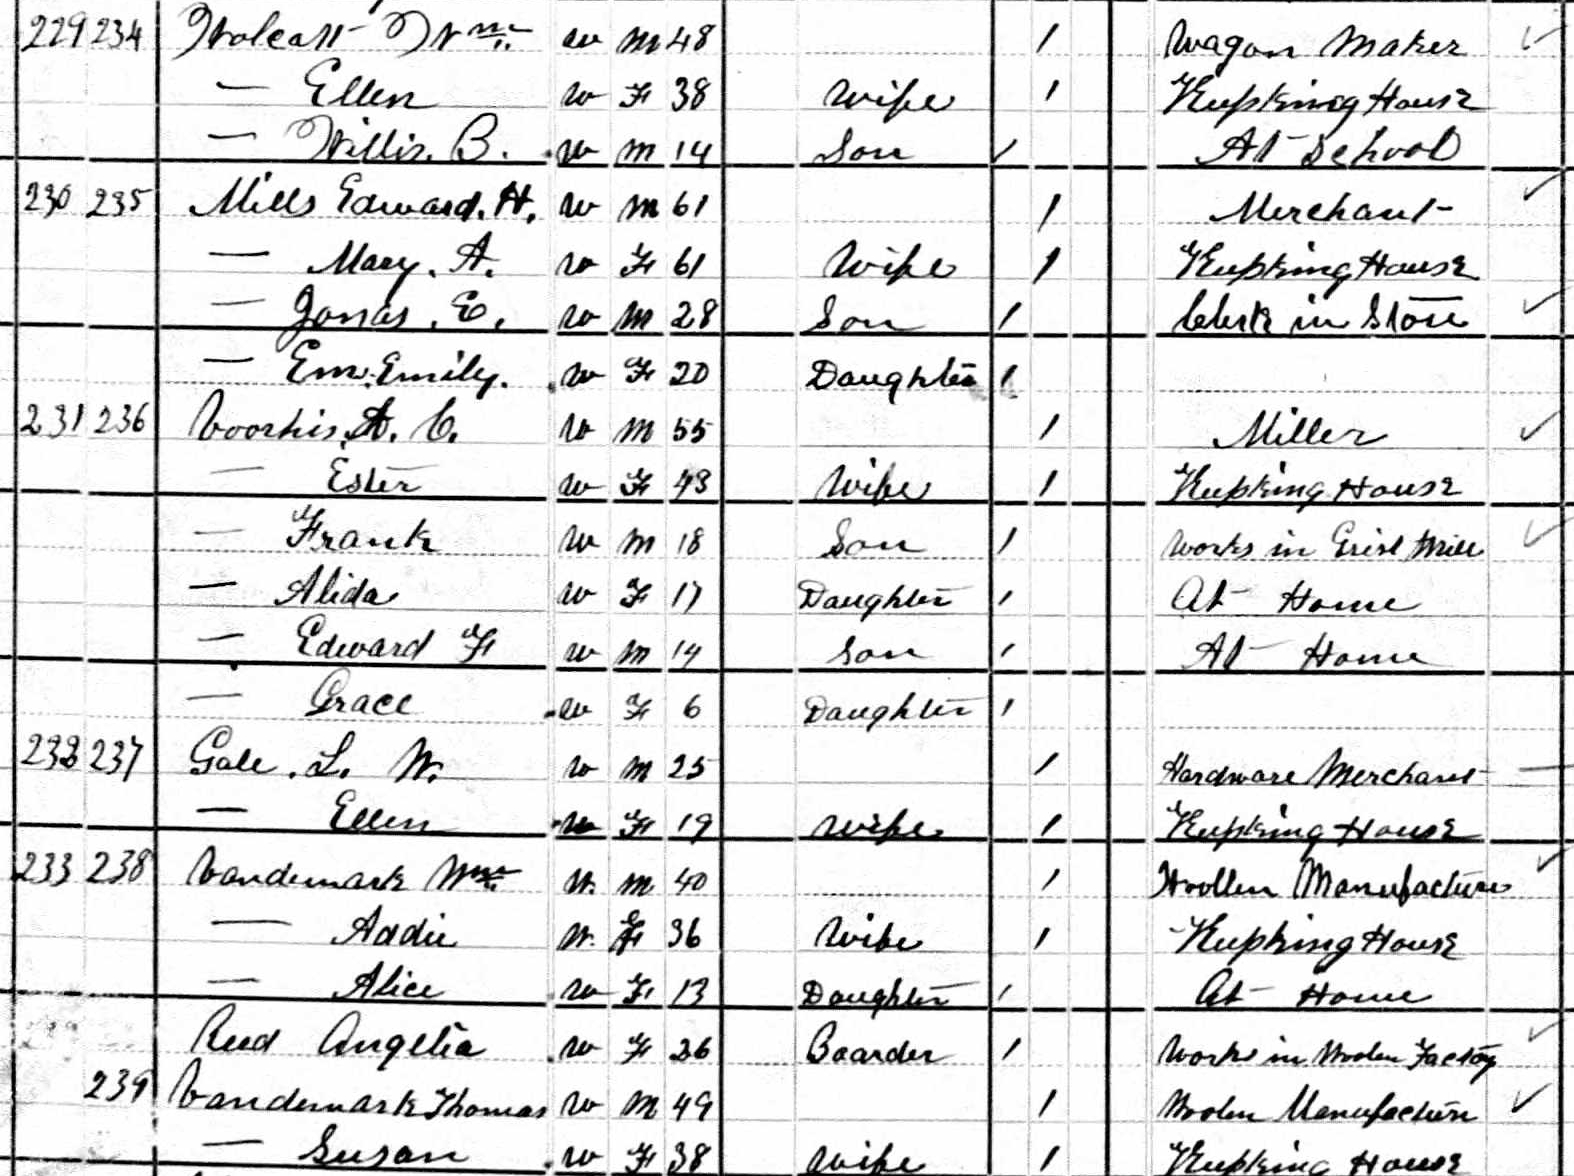 229 234 Wolcott Wm. W M 48 / Wagon Maker ✓
— Ellen W F 38 Wife / Keeping House
— Willis. B. W M 14 Son / At School
230 235 Mills Edward. H. W M 61 / Merchant ✓
— Mary. A. W F 61 Wife / Keeping House
— Jonas. E. W M 28 Son / Clerk in Store ✓
— Em. Emily. W F 20 Daughter /
231 236 Voorhis A. C. W M 55 / Miller ✓
— Ester W F 43 Wife / Keeping House
— Frank W M 18 Son / Works in Grist Mill ✓
— Alida W F 17 Daughter / At Home
— Edward F W M 14 Son / At Home
— Grace W F 6 Daughter /
232 237 Gale. L. W. W M 25 / Hardware Merchant —
— Ellen W F 19 Wife / Keeping House
233 238 Vandemark Wm. W. M 40 / Woollen Manufacture ✓
— Addie W. F 36 Wife / Keeping House
— Alice W F 13 Daughter / At Home
Reed Angelia W F 26 Boarder / Works in Woolen Factory ✓
239 Vandemark Thomas W M 49 / Woolen Manufacture ✓
— Susan W F 38 Wife / Keeping House